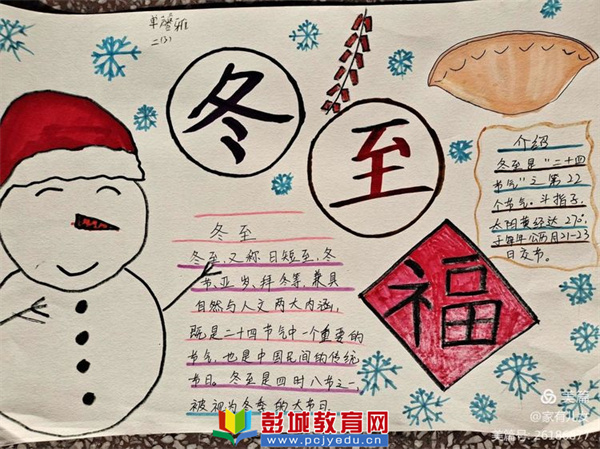 单馨雅
二(3)
冬
至
介绍
冬至是“二十四
节气”之第22
个节气。斗指子,
太阳黄经达270°,
于每年公历12月21-23
日交节。
冬至
冬至,又称日短至、冬
节、亚岁、拜冬等,兼具
自然与人文两大内涵,
既是二十四节气中一个重要的
节气,也是中国民间的传统
节日。冬至是四时八节之一,
被视为冬季的大节日。
福
彭城教育网
www.pcjyedu.cn
美篇
@家有儿女
美篇号: 26186877